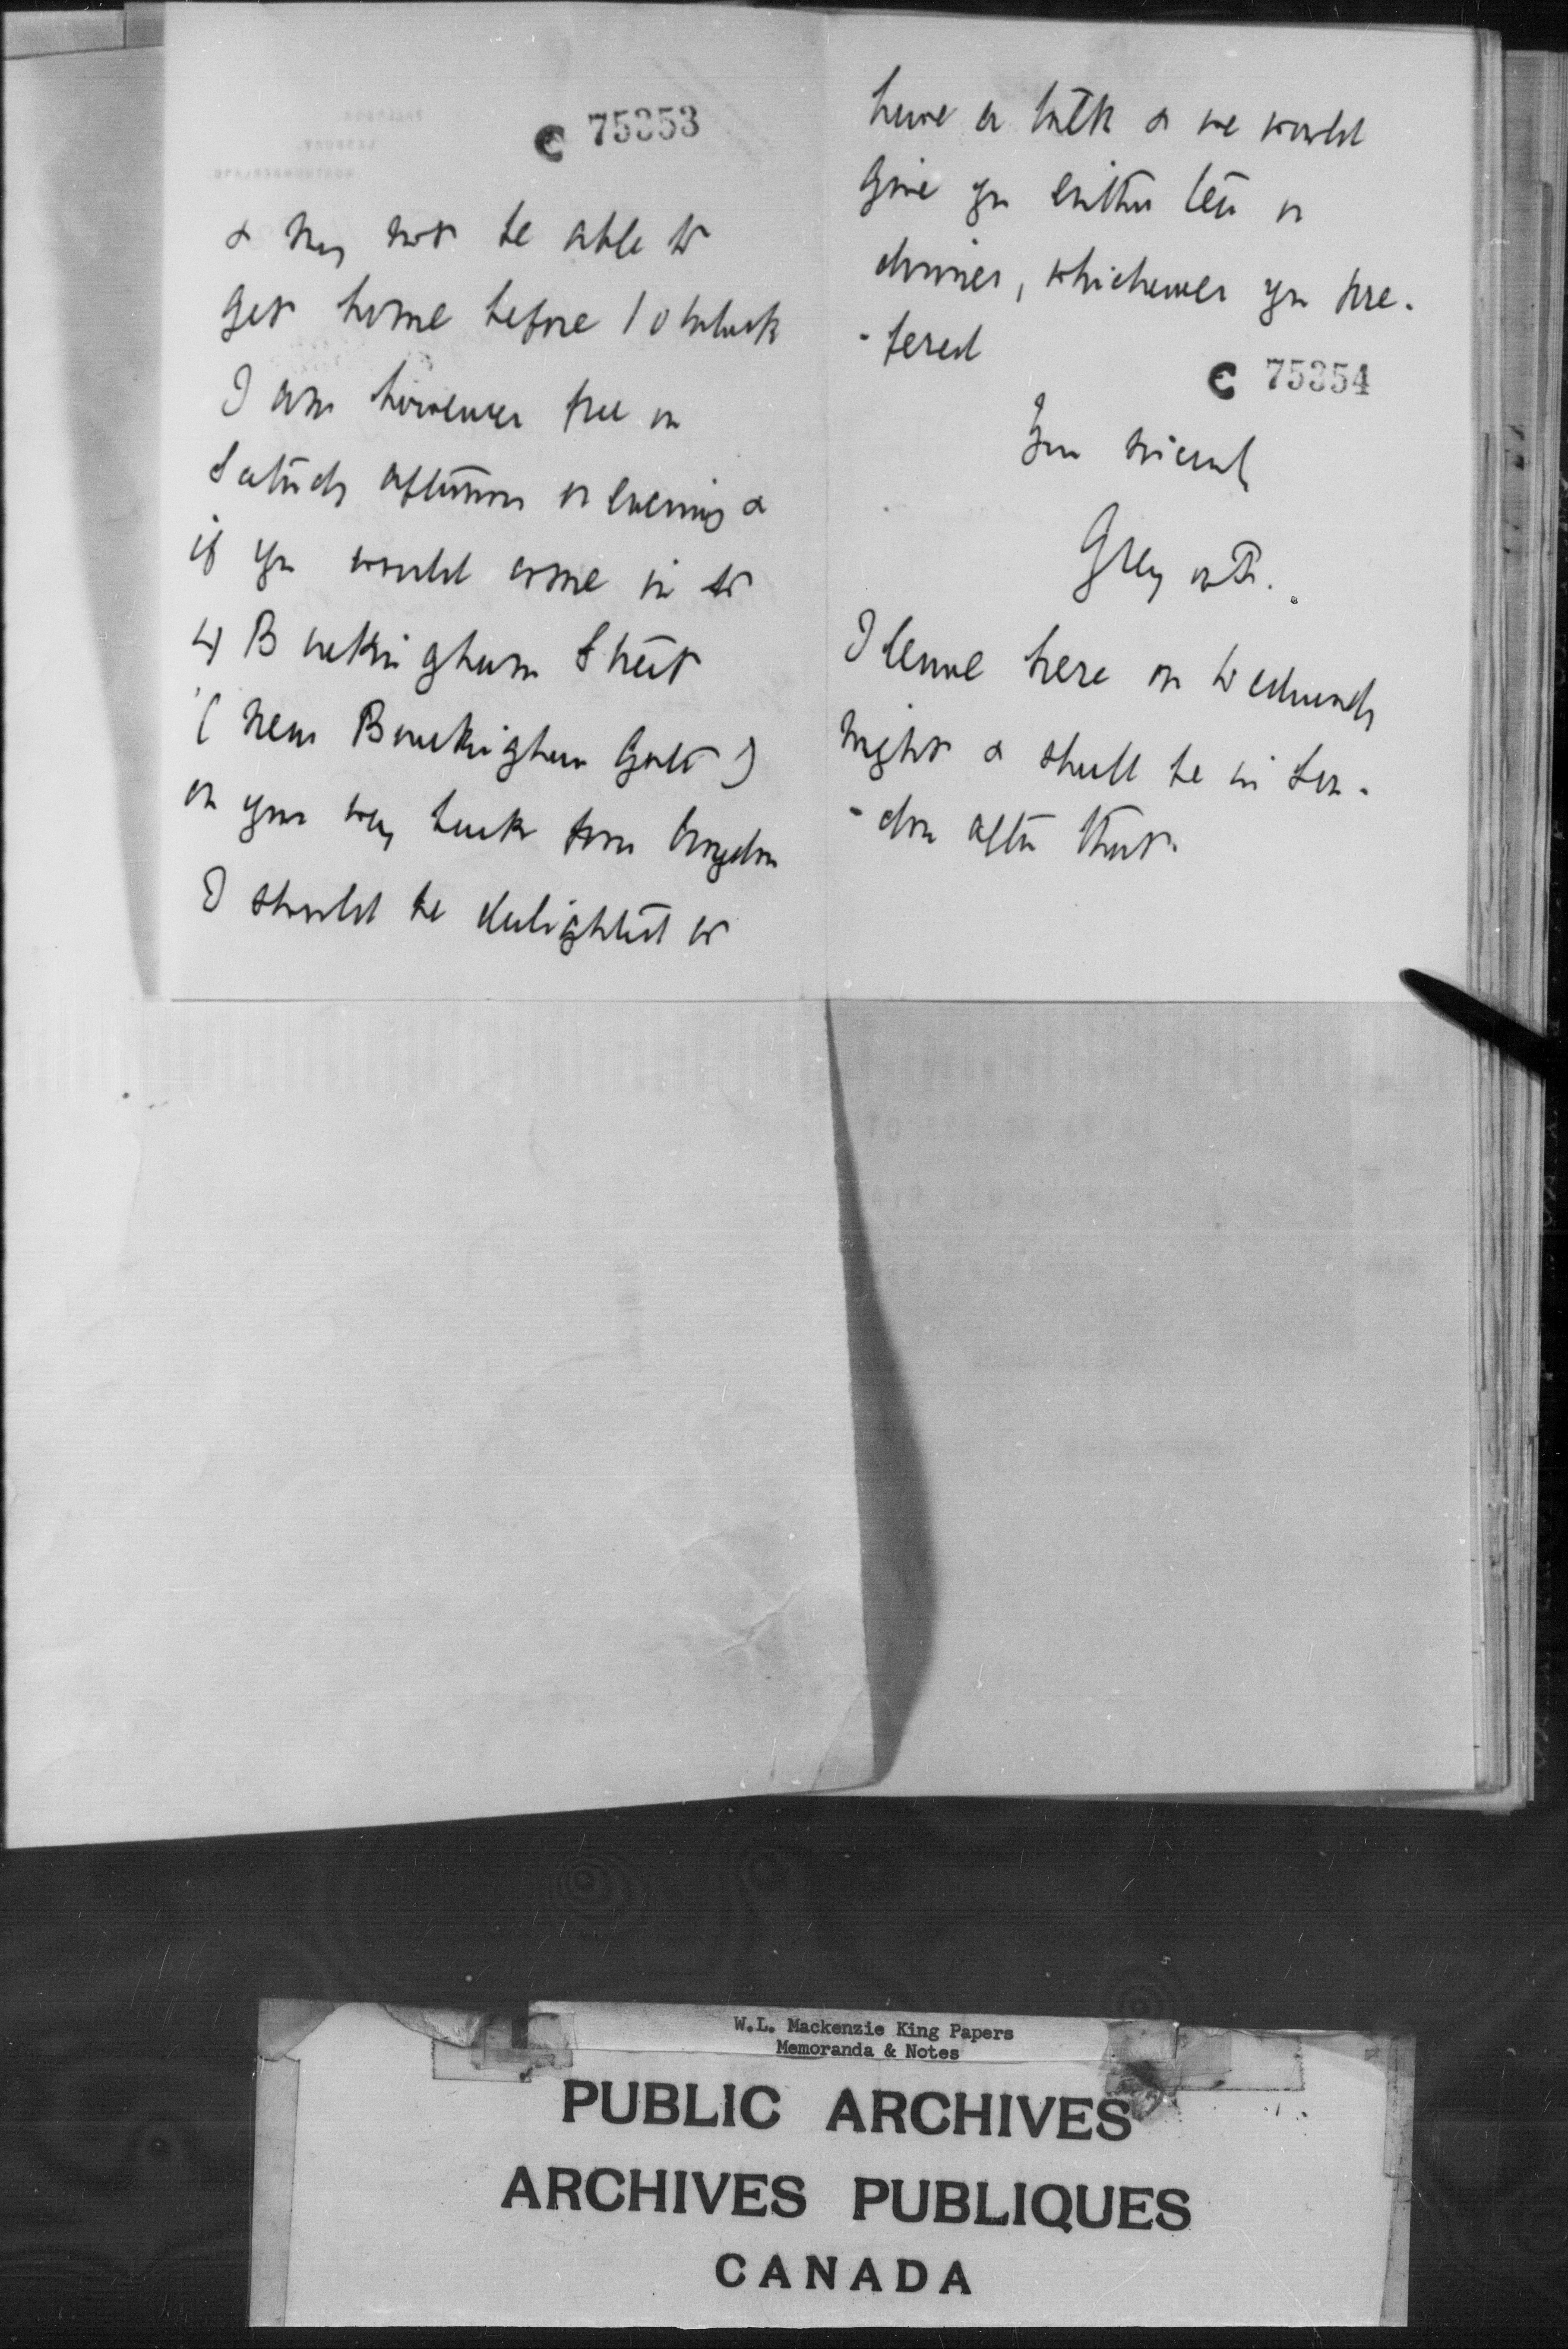 C 75353
& may not be able to
get home before 10 oclock
I am however free on
Saturday afternoon or evening &
if you would come in to
4 Buckingham Street
(near Buckingham Gate)
on your way back from Croydon
I should be delighted to
have a talk & we would
give you either tea or
dinner, whichever you pre-
-fered
C 75354
Yrs sincerely
Grey of F.
I leave here on Wednesday
night & shall be in Lon-
-don after that.
W.L. Mackenzie King Papers
Memoranda & Notes
PUBLIC ARCHIVES
ARCHIVES PUBLIQUES
CANADA